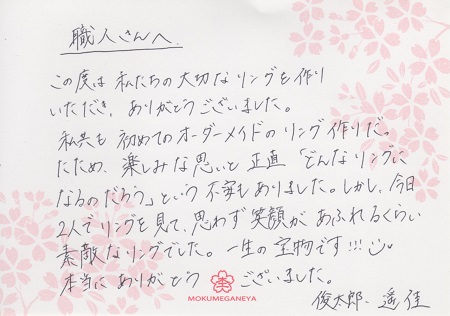 職人さんへ
この度は私たちの大切なリングを作り
いただき、ありがとうございました。
私共も初めてのオーダーメイドのリング作りだっ
たため、楽しみな思いと正直「どんなリングに
なるのだろう」という不安もありました。しかし、今日
2人でリングを見て、思わず笑顔があふれるくらい
素敵なリングでした。一生の宝物です!!!
本当にありがとうございました。
MOKUMEGANEYA
俊太郎、遥佳